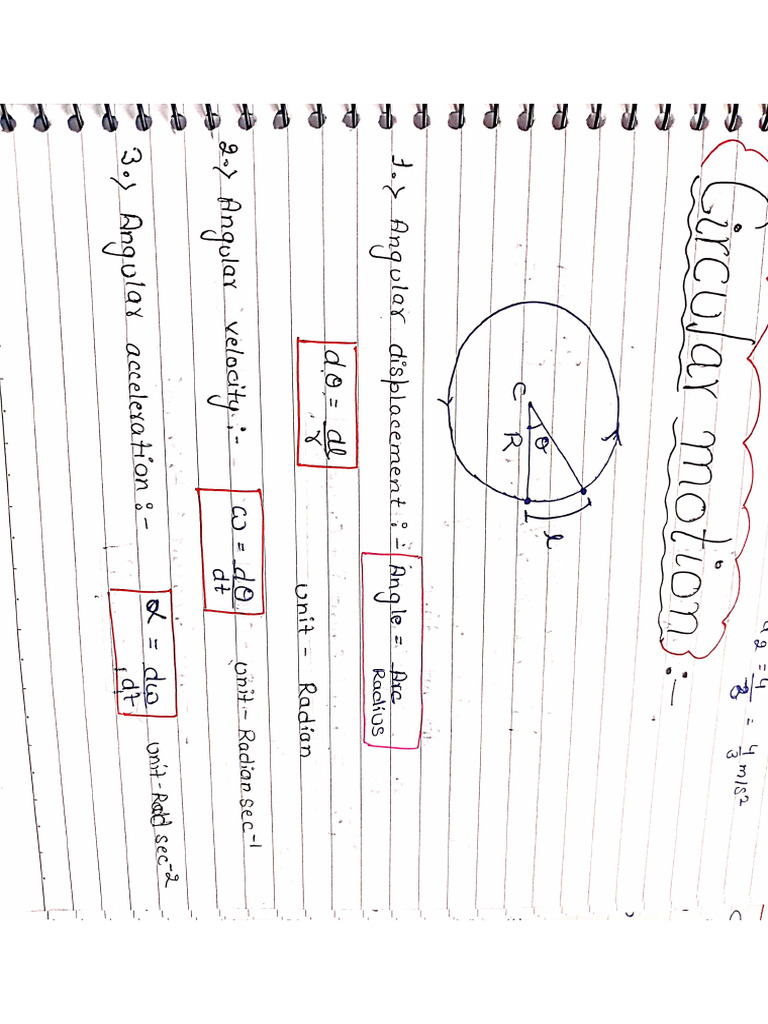 a2 = 4/3 = 4/3 m/s2
Circular motion :-
C θ R l
1.> Angular displacement :- Angle = Arc/Radius
dθ = dl/r unit - Radian
2.> Angular velocity :- ω = dθ/dt unit - Radian sec-1
3.> Angular acceleration :- α = dω/dt unit - Rad sec-2